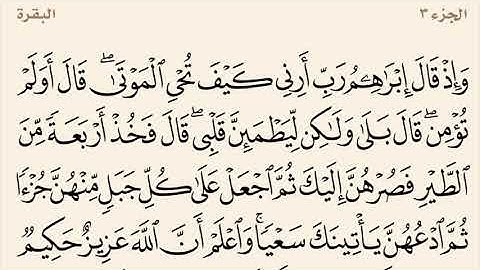 الجزء ٣ البقرة
وَإِذْ قَالَ إِبْرَٰهِـۧمُ رَبِّ أَرِنِى كَيْفَ تُحْىِ ٱلْمَوْتَىٰ ۖ قَالَ أَوَلَمْ
تُؤْمِن ۖ قَالَ بَلَىٰ وَلَـٰكِن لِّيَطْمَئِنَّ قَلْبِى ۖ قَالَ فَخُذْ أَرْبَعَةً مِّنَ
ٱلطَّيْرِ فَصُرْهُنَّ إِلَيْكَ ثُمَّ ٱجْعَلْ عَلَىٰ كُلِّ جَبَلٍ مِّنْهُنَّ جُزْءًا
ثُمَّ ٱدْعُهُنَّ يَأْتِينَكَ سَعْيًا ۚ وَٱعْلَمْ أَنَّ ٱللَّهَ عَزِيزٌ حَكِيمٌ